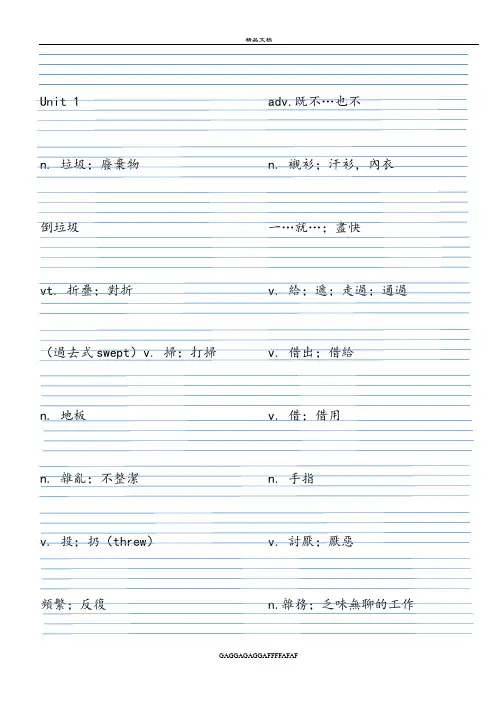 精品文档
Unit 1 adv.既不…也不
n. 垃圾；廢棄物 n. 襯衫；汗衫，內衣
倒垃圾 一…就…；盡快
vt. 折疊；對折 v. 給；遞；走過；通過
（過去式swept）v. 掃；打掃 v. 借出；借給
n. 地板 v. 借；借用
n. 雜亂；不整潔 n. 手指
v. 投；扔（threw） v. 討厭；厭惡
頻繁；反復 n.雜務；乏味無聊的工作
GAGGAGAGGAFFFFAFAF